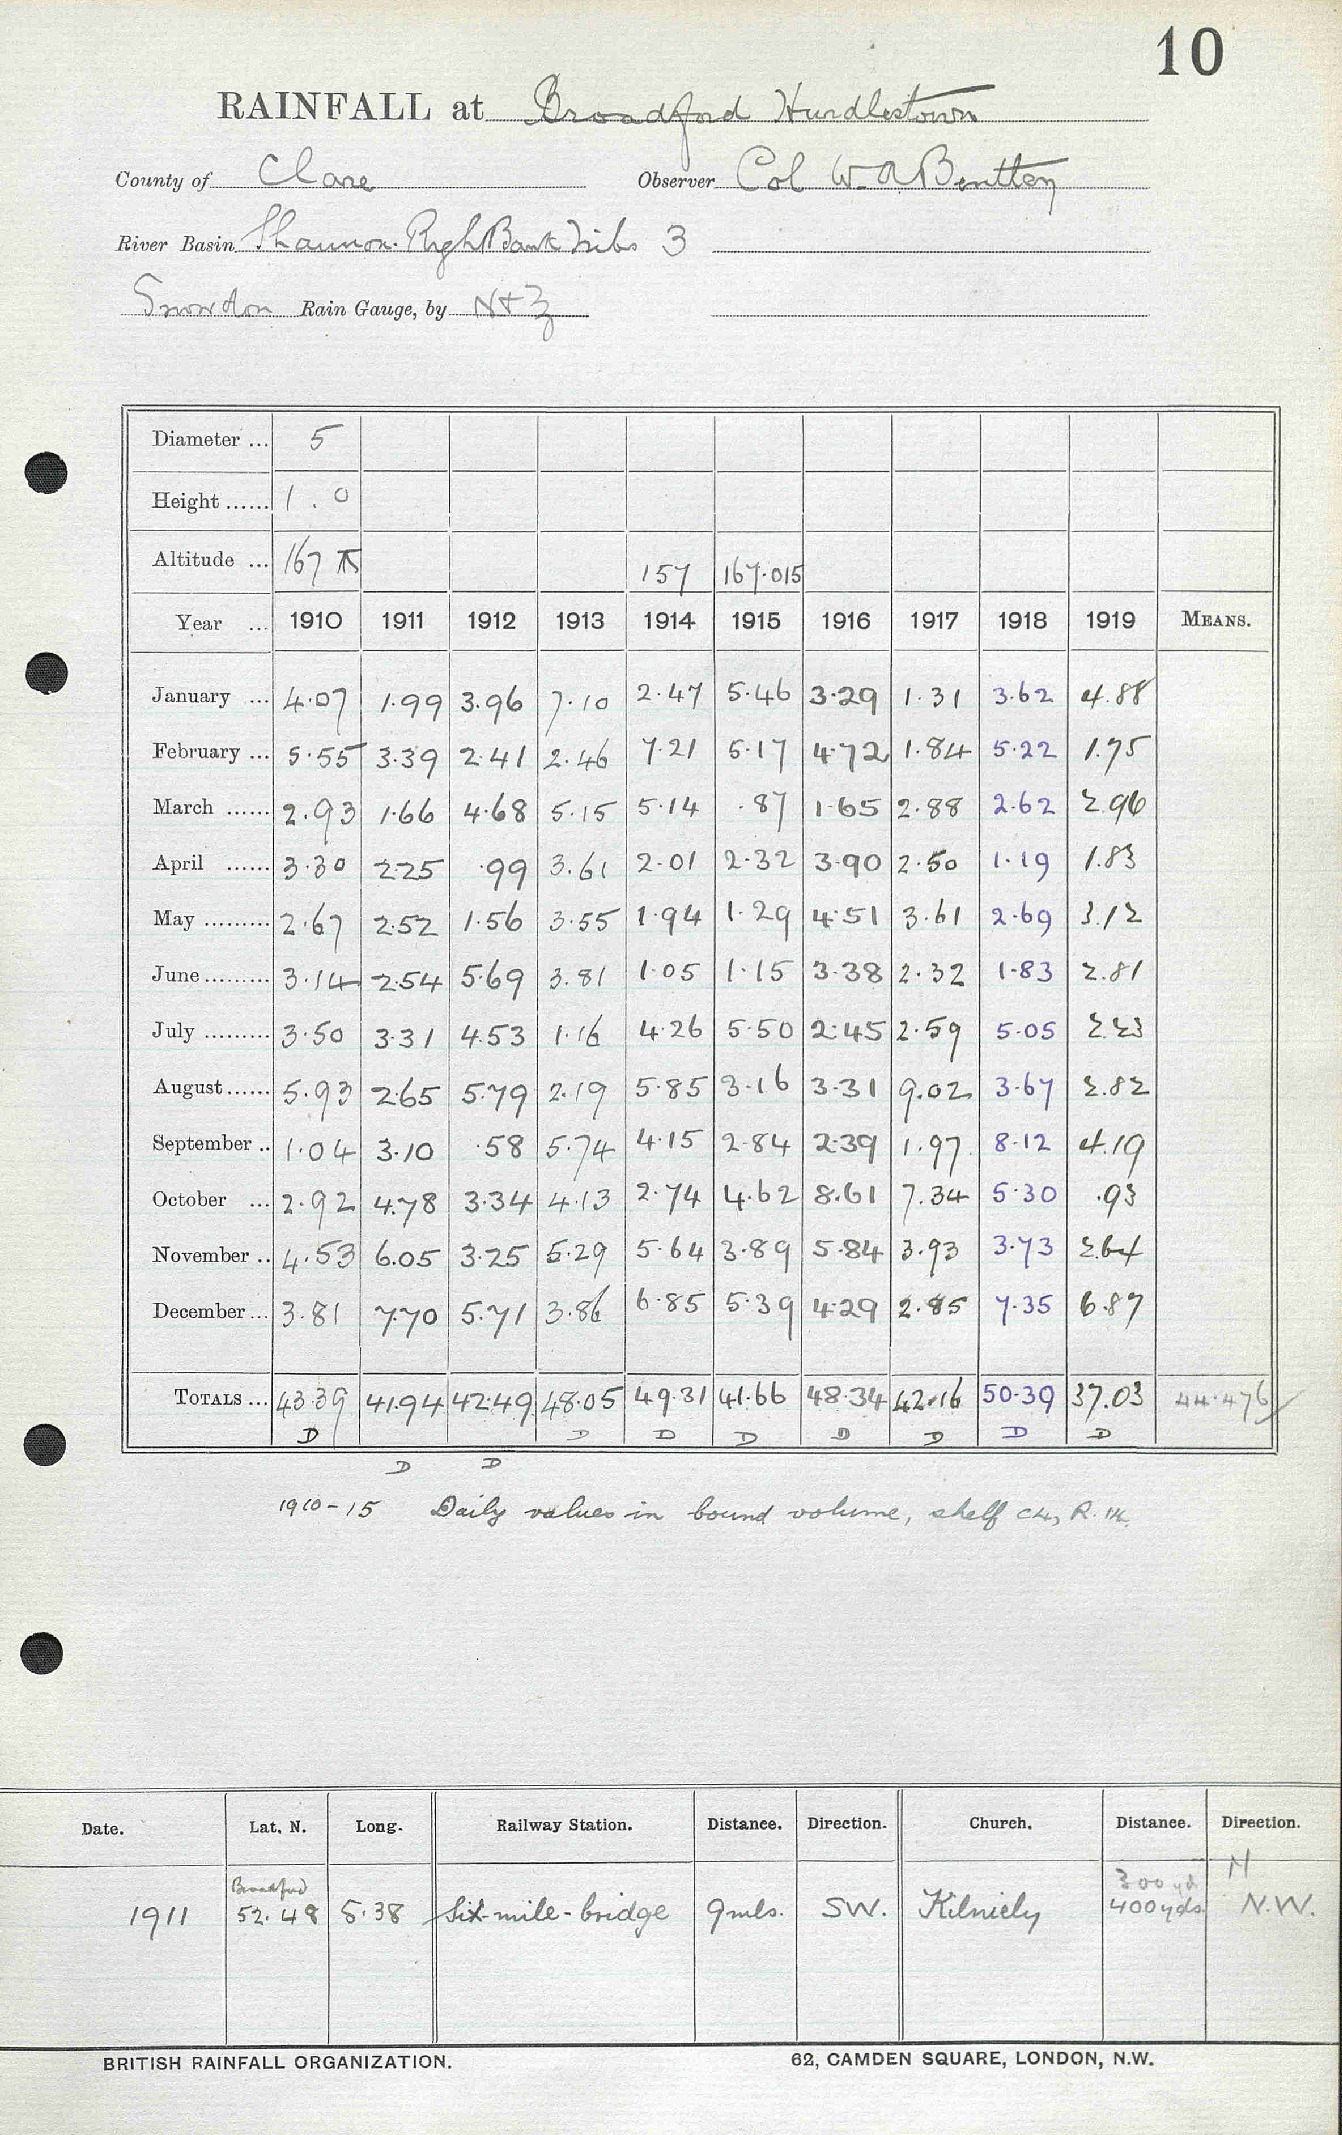 10
RAINFALL at Broadford Hurdlestown
County of Clare Observer Col W. A Bentley
River Basin Shannon. Righ Bank Tribs 3
Snowdon Rain Gauge, by N+Z
Diameter ... 5
Height ...... 1.0
Altitude ... 167 157 167.015
Year ... 1910 1911 1912 1913 1914 1915 1916 1917 1918 1919 MEANS.
January ... 4.07 1.99 3.96 7.10 2.47 5.46 3.29 1.31 3.62 4.88
February ... 5.55 3.39 2.41 2.46 7.21 5.17 4.72 1.84 5.22 1.75
March ...... 2.93 1.66 4.68 5.15 5.14 .87 1.65 2.88 2.62 2.96
April ...... 3.30 2.25 .99 3.61 2.01 2.32 3.90 2.50 1.19 1.83
May ......... 2.67 2.52 1.56 3.55 1.94 1.29 4.51 3.61 2.69 3.12
June ......... 3.14 2.54 5.69 3.81 1.05 1.15 3.38 2.32 1.83 2.81
July ......... 3.50 3.31 4.53 1.16 4.26 5.50 2.45 2.59 5.05 2.23
August ...... 5.93 2.65 5.79 2.19 5.85 3.16 3.31 9.02 3.67 2.82
September .. 1.04 3.10 .58 5.74 4.15 2.84 2.39 1.97 8.12 4.19
October ... 2.92 4.78 3.34 4.13 2.74 4.62 8.61 7.34 5.30 .93
November .. 4.53 6.05 3.25 5.29 5.64 3.89 5.84 3.93 3.73 2.64
December ... 3.81 7.70 5.71 3.86 6.85 5.39 4.29 2.85 7.35 6.87
TOTALS ... 43.39 41.94 42.49 48.05 49.31 41.66 48.34 42.16 50.39 37.03 44.476
D D D D D D D D
D D
1910-15 Daily values in bound volume, shelf C4, R.
Date. Lat. N. Long. Railway Station. Distance. Direction. Church. Distance. Direction.
Broadford 300 yd N
1911 52.48 8.38 Six-mile-bridge 9 mls. SW. Kilniely 400 yds. N.W.
BRITISH RAINFALL ORGANIZATION. 62, CAMDEN SQUARE, LONDON, N.W.